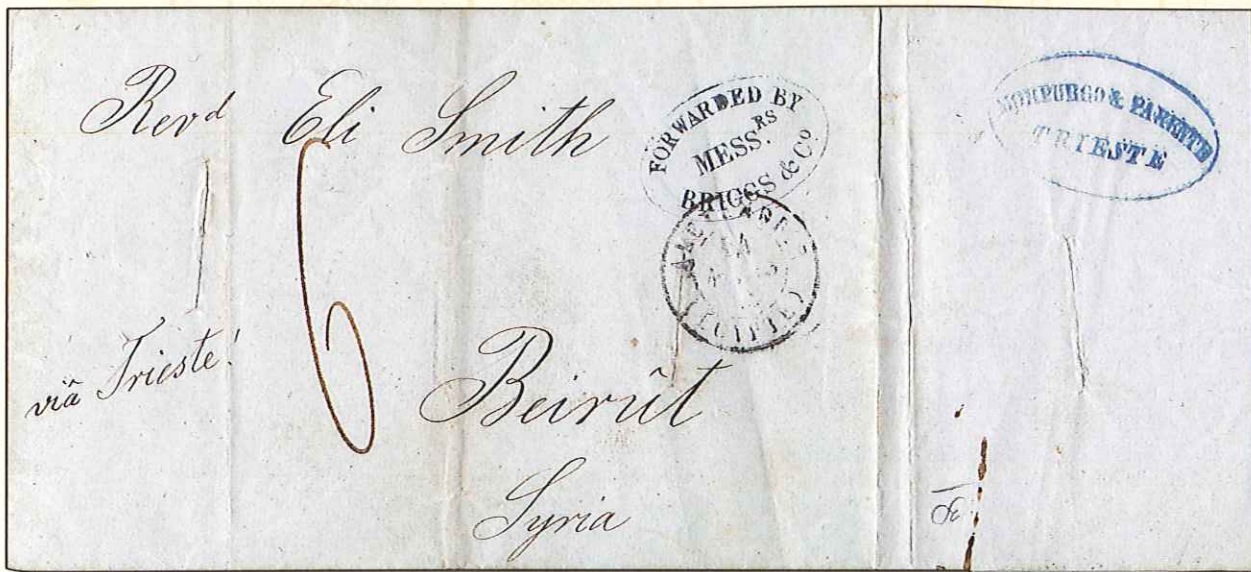 Revd Eli Smith
FORWARDED BY
MESS.RS
BRIGGS & Co
MORPURGO & PARENTE
TRIESTE
viâ Trieste!
6
Beirût
Syria